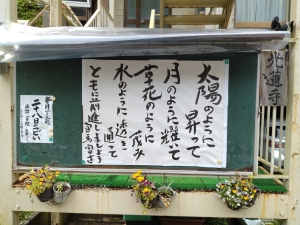 太陽のように
昇って
月のように輝いて
草花のように
茂み
水のように透き
通って
ともに前進しましょう
二十八日
蓮寺